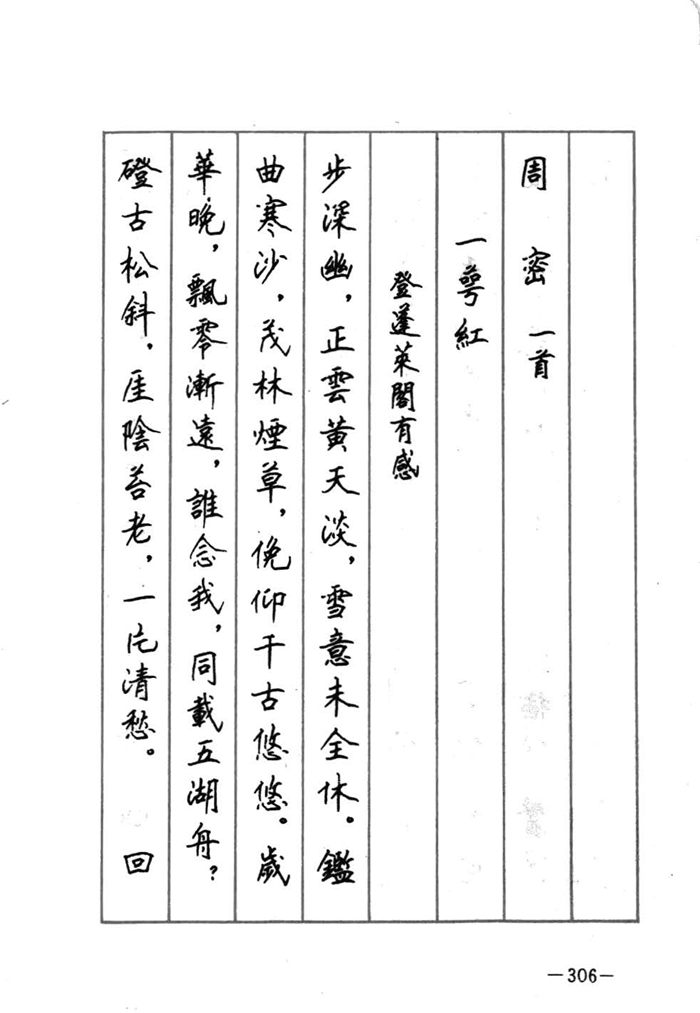 周密 一首
一萼紅
登蓬萊閣有感
步深幽，正雲黃天淡，雪意未全休。鑑
曲寒沙，茂林煙草，俛仰千古悠悠。歲
華晚，飄零漸遠，誰念我，同載五湖舟？
磴古松斜，厓陰苔老，一片清愁。 回
—306—